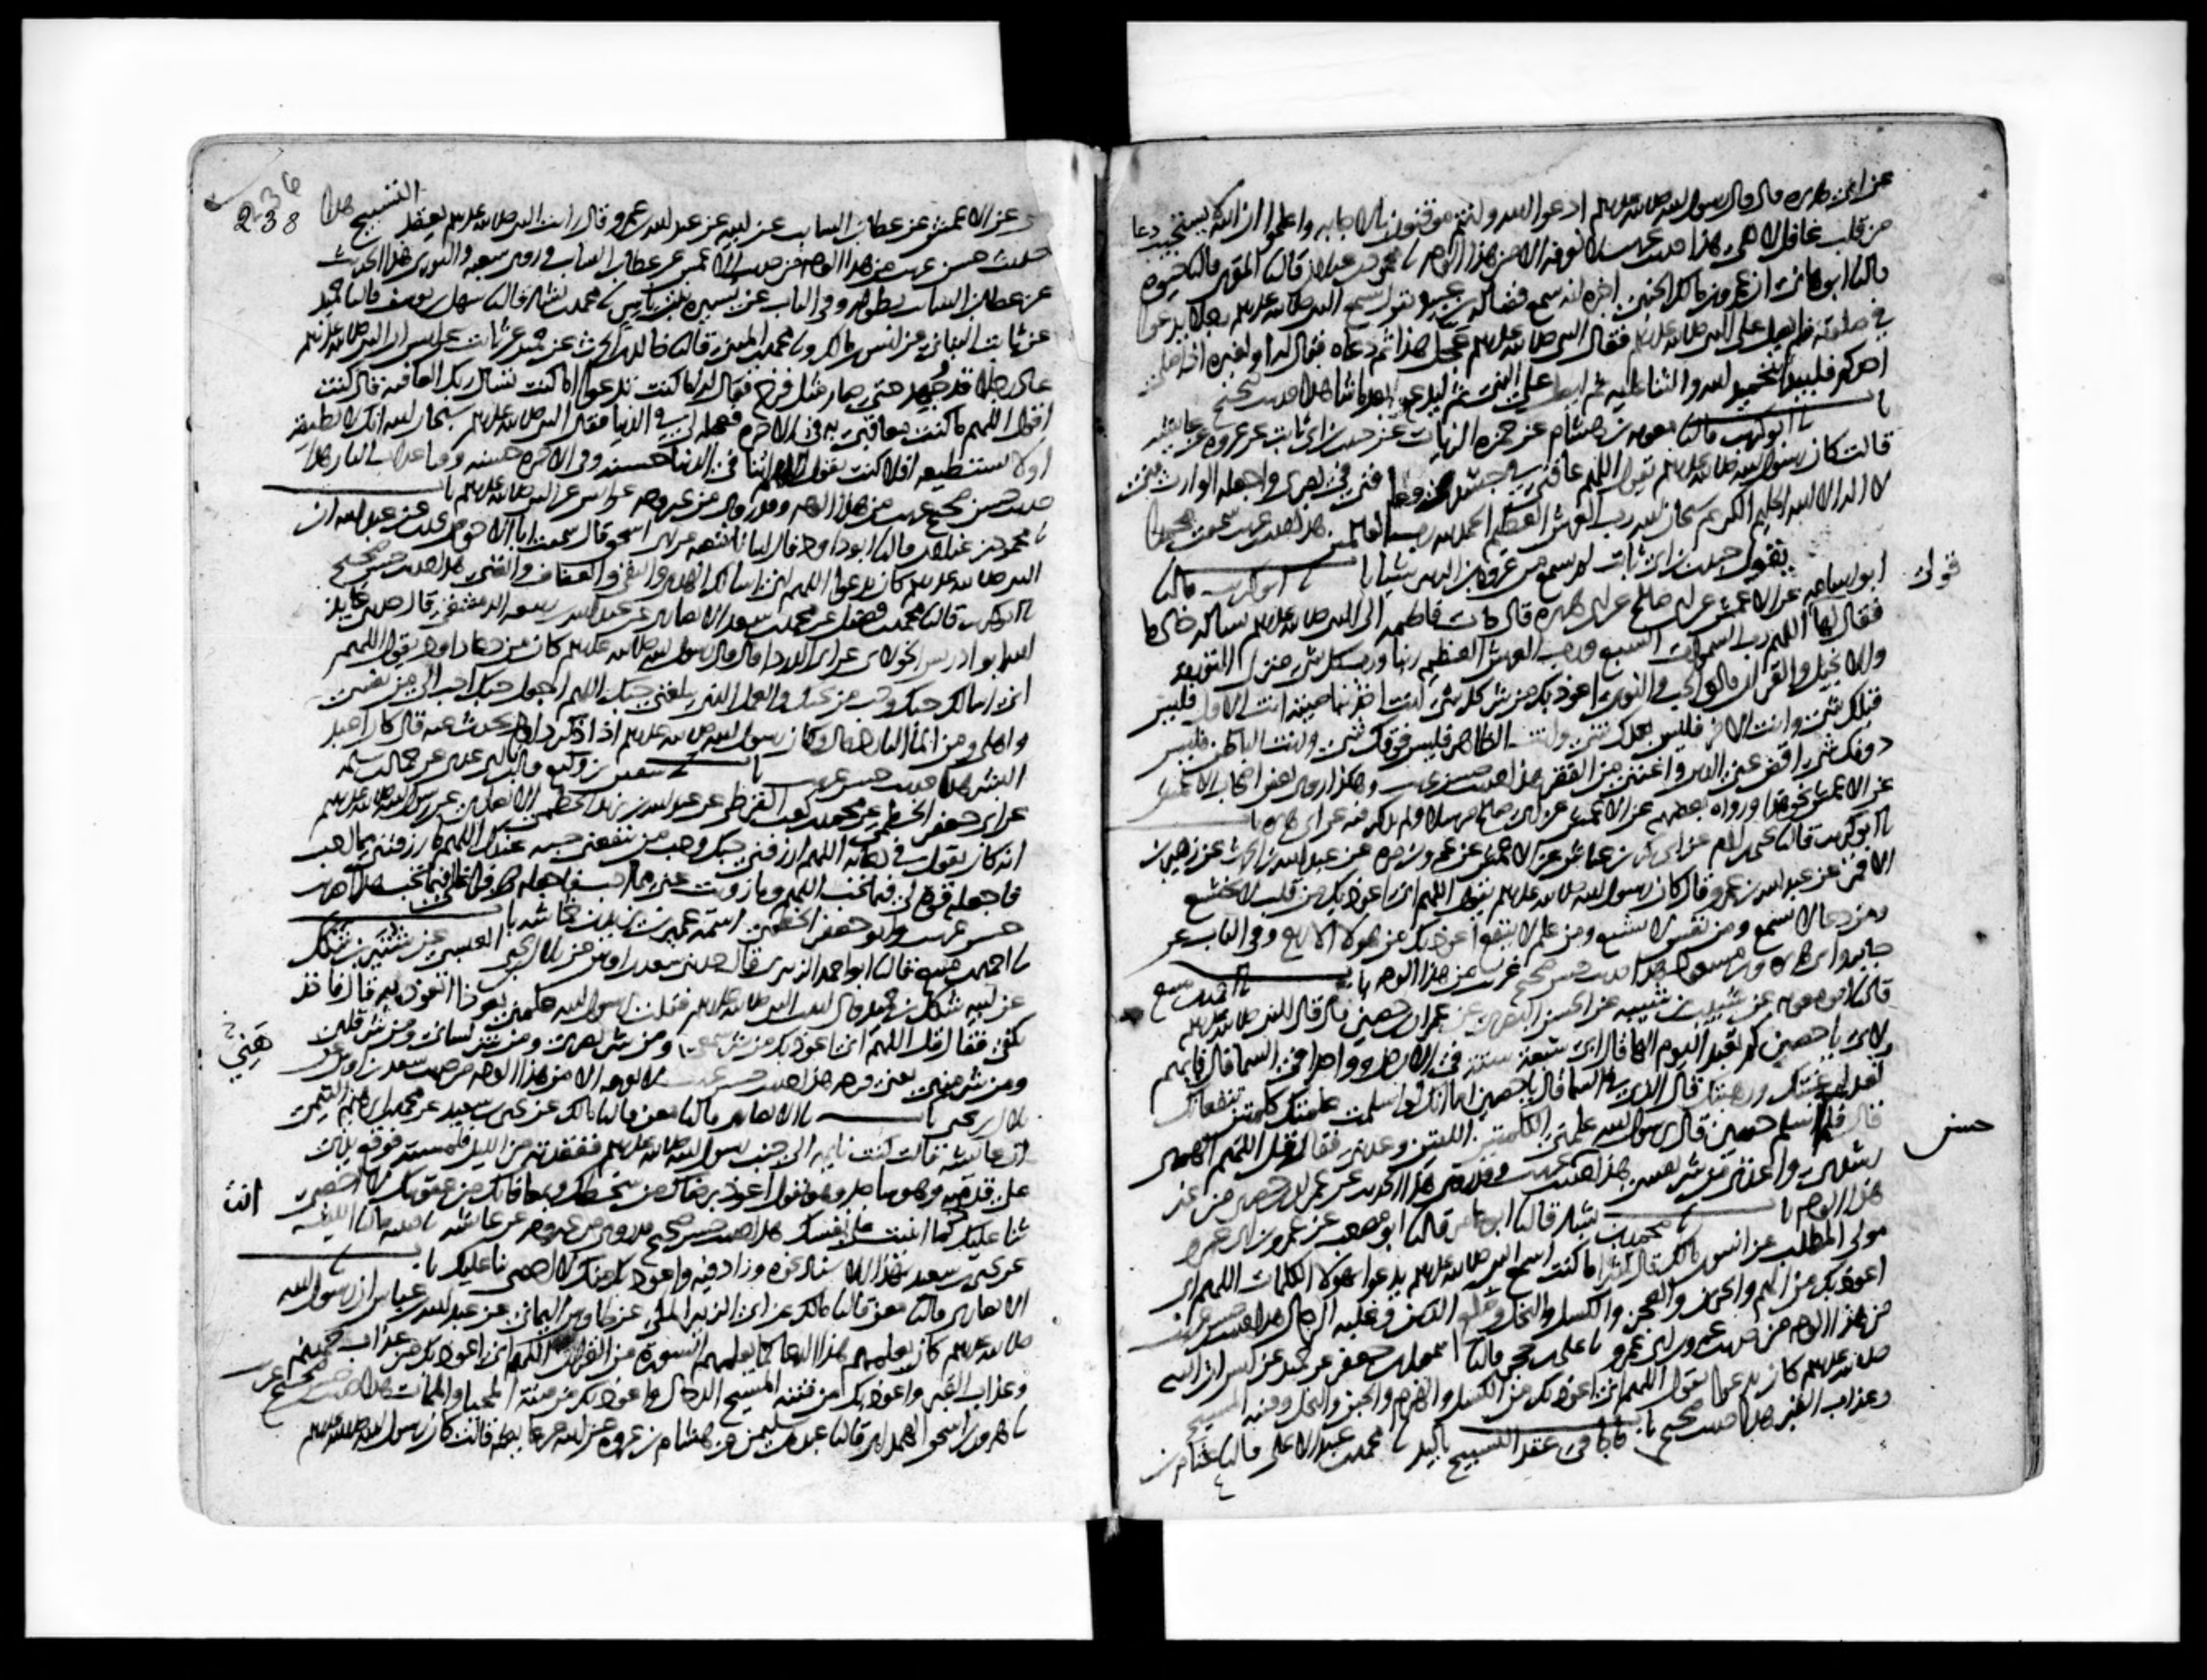 عن ابي هريره قال قال رسول الله صلى الله عليه وسلم ادعوا الله وانتم موقنون بالاجابه واعلموا ان الله لا يستجيب دعا
من قلب غافل لاهي هذا حديث غريب لا نعرفه الا من هذا الوجه نا محمود بن غيلان قال نا المقري قال نا حيوه
قال نا ابو هاني ان عمرو بن مالك الجنبي اخبره انه سمع فضاله بن عبيد يقول سمع النبي صلى الله عليه وسلم رجلا يدعوا
في صلوته فلم يصل على النبي صلى الله عليه وسلم فقال النبي صلى الله عليه وسلم عجل هذا ثم دعاه فقال له او لغيره اذا صلى
احدكم فليبدأ بتحميد الله والثنا عليه ثم ليصل على النبي ثم ليدع بعد ما شا هذا حديث صحيح
نا ابو كريب قال نا معويه بن هشام عن حمزه الزيات عن حبيب بن ابي ثابت عن عروه عن عايشه
قالت كان رسول الله صلى الله عليه وسلم يقول اللهم عافني في جسدي وعافني في بصري واجعله الوارث مني
لا اله الا الله الحليم الكريم سبحان الله رب العرش العظيم الحمد لله رب العالمين هذا حديث غريب سمعت محمدا
يقول حبيب بن ابي ثابت لم يسمع من عروه بن الزبير شيا با نا ابو كريب قال نا
ابو اسامه عن الاعمش عن ابي صالح عن ابي هريره قال جات فاطمه الى النبي صلى الله عليه وسلم تساله خادما
فقال لها قولي
اللهم رب السموات السبع ورب العرش العظيم ربنا ورب كل شي منزل التوريه
والانجيل والقران فالق الحب والنوى اعوذ بك من شر كل شي انت اخذ بناصيته انت الاول فليس
قبلك شي وانت الاخر فليس بعدك شي وانت الظاهر فليس فوقك شي وانت الباطن فليس
دونك شي اقض عني الدين واغنني من الفقر هذا حديث حسن غريب وهكذا روى بعض اصحاب الاعمش
عن الاعمش نحو هذا ورواه بعضهم عن الاعمش عن ابي صالح مرسلا ولم يذكر فيه عن ابي هريره با
نا ابو كريب قال نا يحيى بن ادم عن ابي بكر بن عياش عن الاعمش عن عمرو بن مره عن عبد الله بن الحارث عن زهير بن
الاقمر عن عبد الله بن عمرو قال كان رسول الله صلى الله عليه وسلم يقول اللهم اني اعوذ بك من قلب لا يخشع
ومن دعا لا يسمع ومن نفس لا تشبع ومن علم لا ينفع اعوذ بك من هولا الاربع وفي الباب عن
جابر وابي هريره وابن مسعود هذا حديث حسن صحيح غريب من هذا الوجه با نا احمد بن منيع
قال نا ابو معويه عن شبيب بن شيبه عن الحسن البصري عن عمران بن حصين قال قال النبي صلى الله عليه وسلم
لابي يا حصين كم تعبد اليوم الها قال ابي سبعة ستة في الارض وواحدا في السما قال فايهم
تعد لرغبتك ورهبتك قال الذي في السما قال يا حصين اما انك لو اسلمت علمتك كلمتين تنفعانك
قال فلما اسلم حصين قال يرسول الله علمني الكلمتين اللتين وعدتني فقال قل اللهم الهمني
رشدي واعذني من شر نفسي هذا حديث حسن غريب وقد روي هذا الحديث عن عمران بن حصين من غير
هذا الوجه با نا محمد بن بشار قال نا ابو عامر قال نا ابو مصعب عن عمرو بن ابي عمرو
مولى المطلب عن انس بن مالك قال كثيرا ما كنت اسمع النبي صلى الله عليه وسلم يدعوا بهولا الكلمات اللهم اني
اعوذ بك من الهم والحزن والعجز والكسل والبخل وضلع الدين وغلبه الرجال هذا حديث حسن غريب
من هذا الوجه من حديث عمرو بن ابي عمرو نا علي بن حجر قال نا اسمعيل بن جعفر عن حميد عن انس ان النبي
صلى الله عليه وسلم كان يدعوا يقول اللهم اني اعوذ بك من الكسل والهرم والجبن والبخل وفتنه المسيح
وعذاب القبر هذا حديث صحيح با ما جا في عقد التسبيح باليد نا محمد بن عبد الاعلى قال نا عثام بن
236
238
علي عن الاعمش عن عطا بن السايب عن ابيه عن عبد الله بن عمرو قال رايت النبي صلى الله عليه وسلم يعقد التسبيح هذا
حديث حسن غريب من هذا الوجه من حديث الاعمش عن عطا بن السايب وروى شعبه والثوري هذا الحديث
عن عطا بن السايب بطوله وفي الباب عن يسيره بنت ياسر نا محمد بن بشار قال نا سهل بن يوسف قال نا حميد
عن ثابت البناني عن انس بن مالك ونا محمد بن المثنى قال نا خالد بن الحارث عن حميد عن ثابت عن انس ان النبي صلى الله عليه وسلم
عاد رجلا قد جهد حتى صار مثل فرخ فقال له اما كنت تدعوا اما كنت تسال ربك العافيه قال كنت
اقول اللهم ما كنت معاقبي به في الاخره فعجله لي في الدنيا فقال النبي صلى الله عليه وسلم سبحان الله انك لا تطيقه
او لا تستطيعه افلا كنت تقول اللهم اتنا في الدنيا حسنه وفي الاخره حسنه وقنا عذاب النار هذا
حديث حسن صحيح غريب من هذا الوجه وقد روي من غير وجه عن انس عن النبي صلى الله عليه وسلم با
نا محمود بن غيلان قال نا ابو داود قال انبانا شعبه عن ابي اسحق قال سمعت ابا الاحوص يحدث عن عبد الله ان
النبي صلى الله عليه وسلم كان يدعوا اللهم اني اسالك الهدى والتقى والعفاف والغنى هذا حديث حسن صحيح
نا ابو كريب قال نا محمد بن فضيل عن محمد بن سعد الانصاري عن عبد الله بن ربيعه الدمشقي قال حدثني عايذ
الله ابو ادريس الخولاني عن ابي الدردا قال قال رسول الله صلى الله عليه وسلم كان من دعا داود يقول اللهم
اني اسالك حبك وحب من يحبك والعمل الذي يبلغني حبك اللهم اجعل حبك احب الي من نفسي
واهلي ومن الما البارد قال وكان رسول الله صلى الله عليه وسلم اذا ذكر داود يحدث عنه قال كان اعبد
البشر هذا حديث حسن غريب با نا سفين بن وكيع قال نا ابن ابي عدي عن حماد بن سلمه
عن ابي جعفر الخطمي عن محمد بن كعب القرظي عن عبد الله بن يزيد الخطمي الانصاري عن رسول الله صلى الله عليه وسلم
انه كان يقول في دعائه اللهم ارزقني حبك وحب من ينفعني حبه عندك اللهم ما رزقتني مما احب
فاجعله قوة لي فيما تحب اللهم وما زويت عني مما احب فاجعله فراغا لي فيما تحب هذا حديث
حسن غريب وابو جعفر الخطمي اسمه عمير بن يزيد بن خماشه با
نا احمد بن منيع قال نا ابو احمد الزبيري قال حدثني سعد بن اوس عن بلال بن يحيى العبسي عن شتير بن شكل
عن ابيه شكل بن حميد قال اتيت النبي صلى الله عليه وسلم فقلت يرسول الله علمني تعوذا اتعوذ به قال فاخذ
بكفي فقال قل اللهم اني اعوذ بك من شر سمعي ومن شر بصري ومن شر لساني ومن شر قلبي
ومن شر منيي يعني فرجه هذا حديث حسن غريب لا نعرفه الا من هذا الوجه من حديث سعد بن اوس عن
هَنِي
بلال بن يحيى با نا الانصاري قال نا معن قال نا مالك عن يحيى بن سعيد عن محمد بن ابراهيم التيمي
ان عايشه قالت كنت نايمه الى جنب رسول الله صلى الله عليه وسلم ففقدته من الليل فلمسته فوقع يدي
على قدميه وهو ساجد وهو يقول اعوذ برضاك من سخطك وبمعافاتك من عقوبتك لا احصي
ثنا عليك انت كما اثنيت على نفسك هذا حديث حسن صحيح قد روي من غير وجه عن عايشه نا قتيبه قال نا الليث
عن يحيى بن سعيد بهذا الاسناد نحوه وزاد فيه واعوذ بك منك لا احصي ثنا عليك با نا
الانصاري قال نا معن قال نا مالك عن ابي الزبير المكي عن طاوس اليماني عن عبد الله بن عباس ان رسول الله
صلى الله عليه وسلم كان يعلمهم هذا الدعا كما يعلمهم السورة من القران اللهم اني اعوذ بك من عذاب جهنم
وعذاب القبر واعوذ بك من فتنه المسيح الدجال واعوذ بك من فتنه المحيا والممات هذا حديث حسن صحيح غريب
نا هرون بن اسحق الهمداني قال نا عبده بن سليمن عن هشام بن عروه عن ابيه عن عايشه قالت كان رسول الله صلى الله عليه وسلم